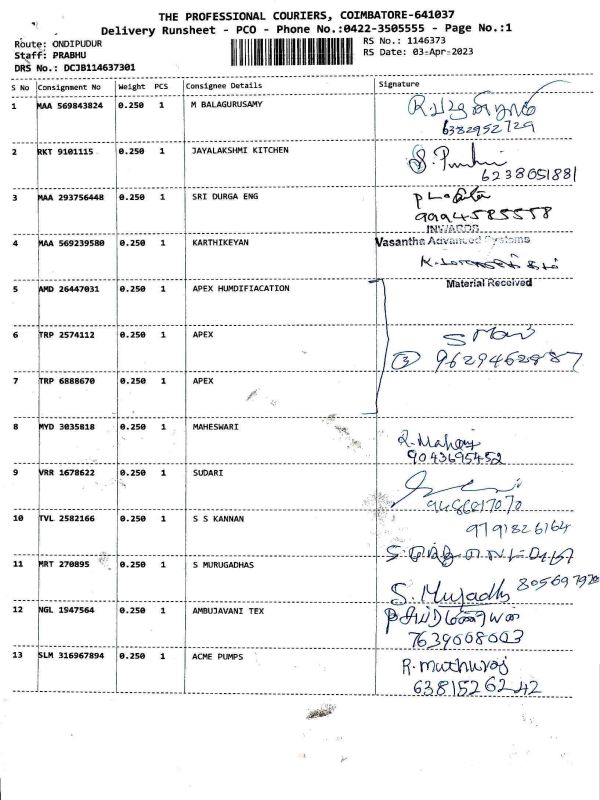 THE PROFESSIONAL COURIERS, COIMBATORE-641037
Delivery Runsheet - PCO - Phone No.:0422-3505555 - Page No.:1
Route: ONDIPUDUR
RS No.: 1146373
Staff: PRABHU
RS Date: 03-Apr-2023
DRS No.: DCJB114637301
S No Consignment No Weight PCS Consignee Details Signature
1 MAA 569843824 0.250 1 M BALAGURUSAMY
6382952729
2 RKT 9101115 0.250 1 JAYALAKSHMI KITCHEN
6238051881
3 MAA 293756448 0.250 1 SRI DURGA ENG
9994585558
INWARDS
4 MAA 569239580 0.250 1 KARTHIKEYAN Vasantha Advanced Systems
Material Received
5 AMD 26447031 0.250 1 APEX HUMDIFIACATION
6 TRP 2574112 0.250 1 APEX S Mani
3 9629462887
7 TRP 6888670 0.250 1 APEX
8 MYD 3035818 0.250 1 MAHESWARI
9043695452
9 VRR 1678622 0.250 1 SUDARI
9486017070
10 TVL 2582166 0.250 1 S S KANNAN 9791826164
11 MRT 270895 0.250 1 S MURUGADHAS
S. Mujadhs
12 NGL 1947564 0.250 1 AMBUJAVANI TEX
7639008003
13 SLM 316967894 0.250 1 ACME PUMPS R. muthuraj
6381526242